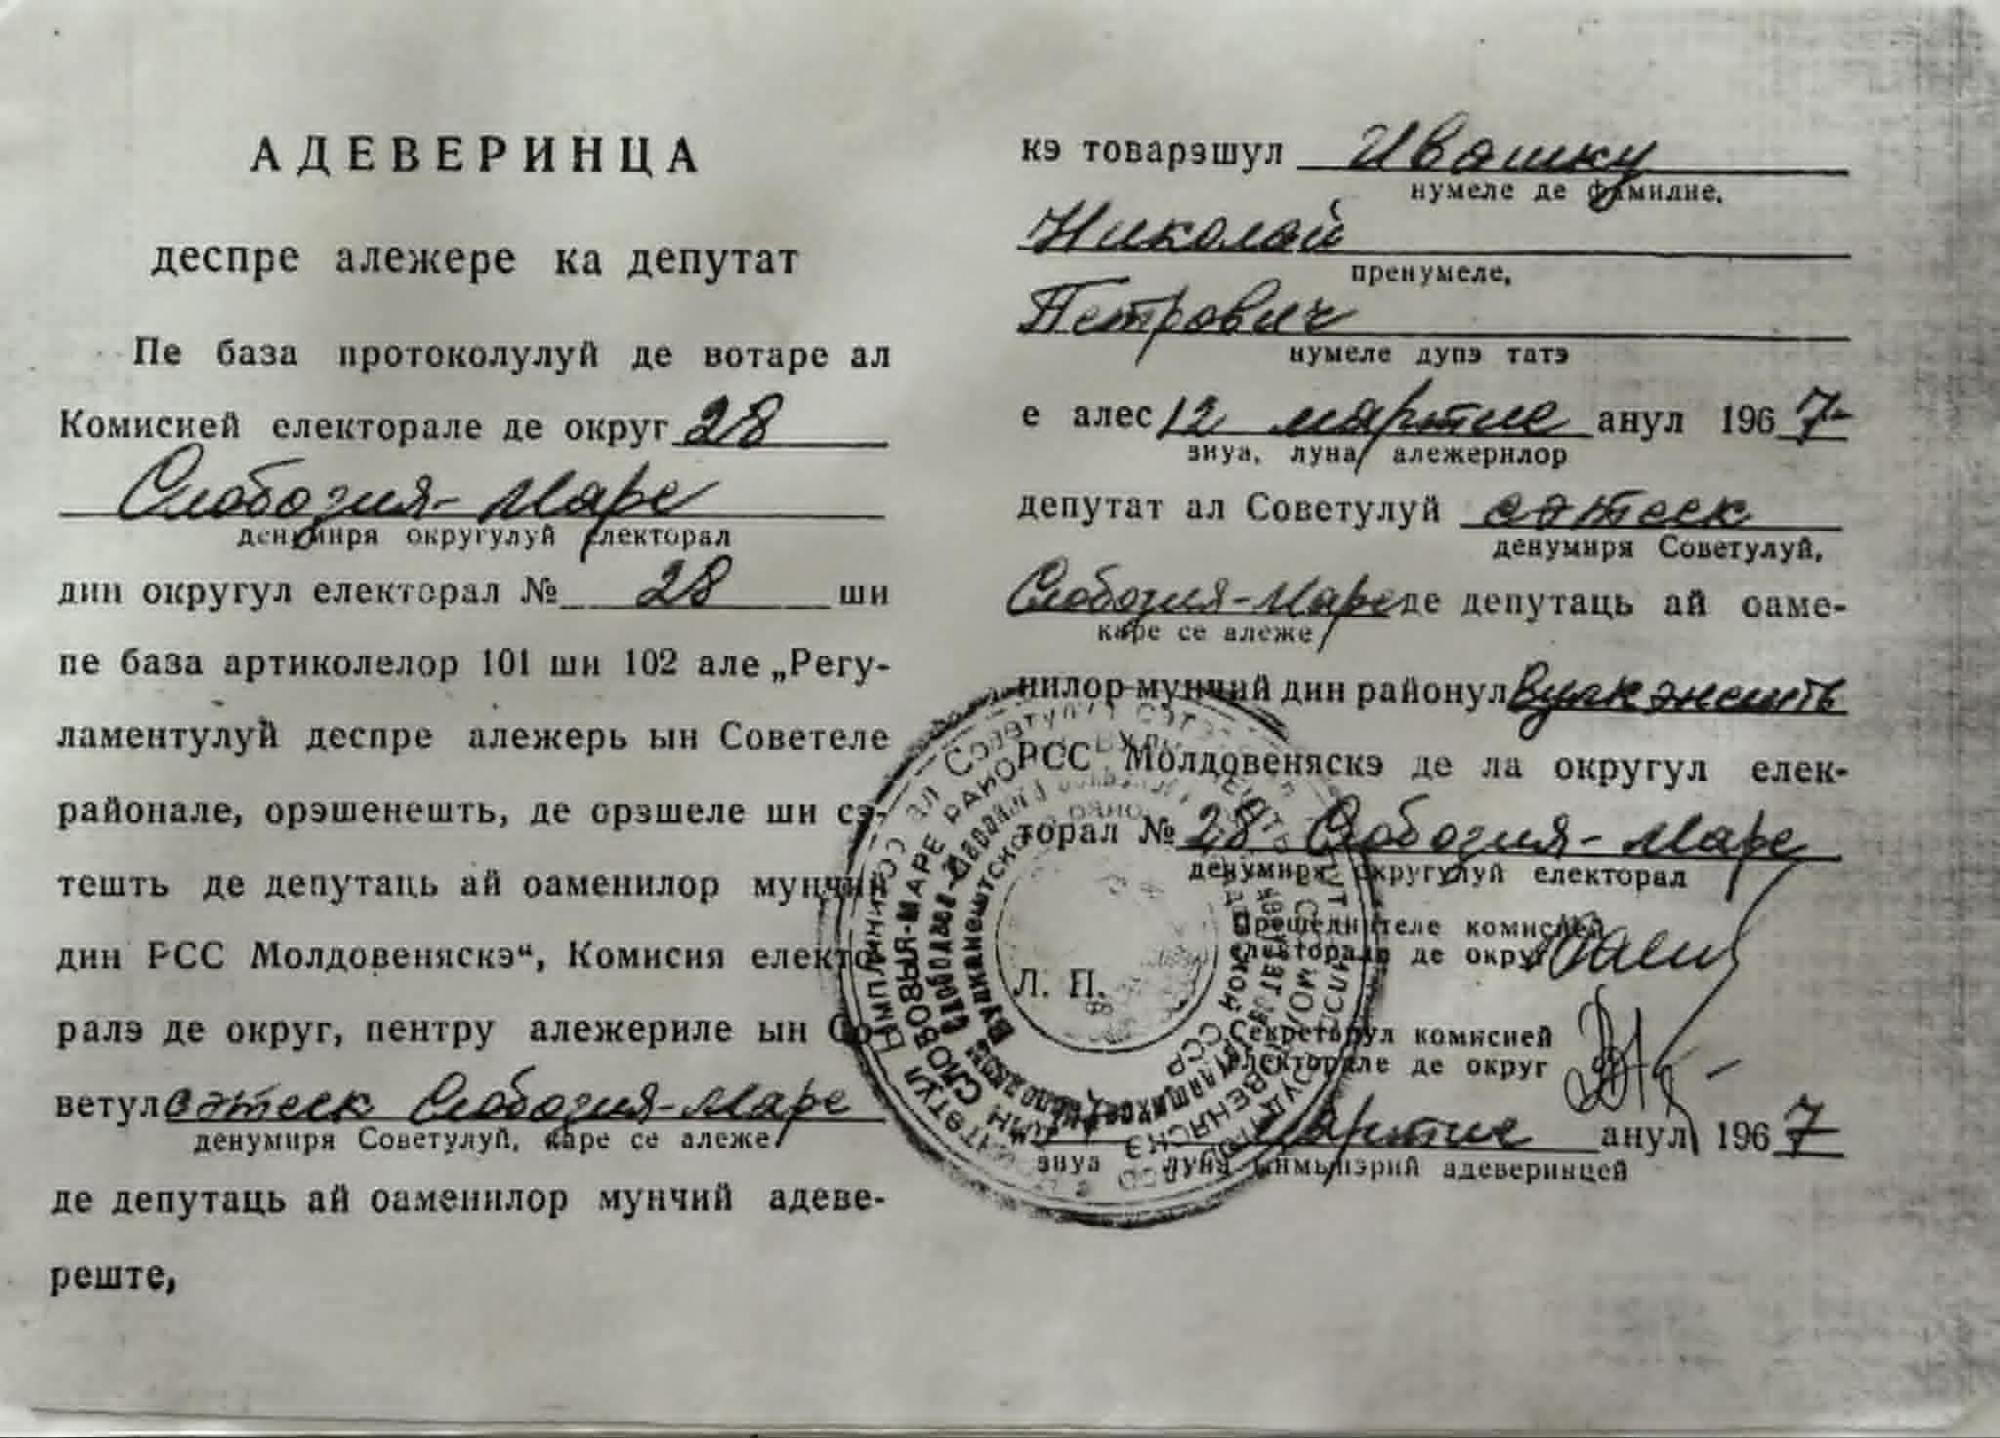 АДЕВЕРИНЦА
деспре алежере ка депутат
Пе база протоколулуй де вотаре ал
Комисией електорале де округ 28
Слобозия-Маре
денумиря округулуй електорал
дин округул електорал № 28 ши
пе база артиколелор 101 ши 102 але „Регу-
ламентулуй деспре алежерь ын Советеле
районале, орэшенешть, де орэшеле ши сэ-
тешть де депутаць ай оаменилор мунчий
дин РСС Молдовеняскэ“, Комисия електо-
ралэ де округ, пентру алежериле ын Со-
ветул сэтеск Слобозия-Маре
денумиря Советулуй, каре се алеже
де депутаць ай оаменилор мунчий адеве-
реште,
кэ товарэшул Ивашку
нумеле де фамилие,
Николай
пренумеле,
Петрович
нумеле дупэ татэ
е алес 12 мартие анул 1967
зиуа, луна алежерилор
депутат ал Советулуй сэтеск
денумиря Советулуй,
Слобозия-Маре де депутаць ай оаме-
каре се алеже
нилор мунчий дин районул Вулкэнешть
РСС Молдовеняскэ де ла округул елек-
торал № 28 Слобозия-Маре
денумиря округулуй електорал
Прешединтеле комисией
електорале де округ
Л. П.
Секретарул комисией
електорале де округ
мартие анул 1967
зиуа луна ынмынэрий адеверинцей